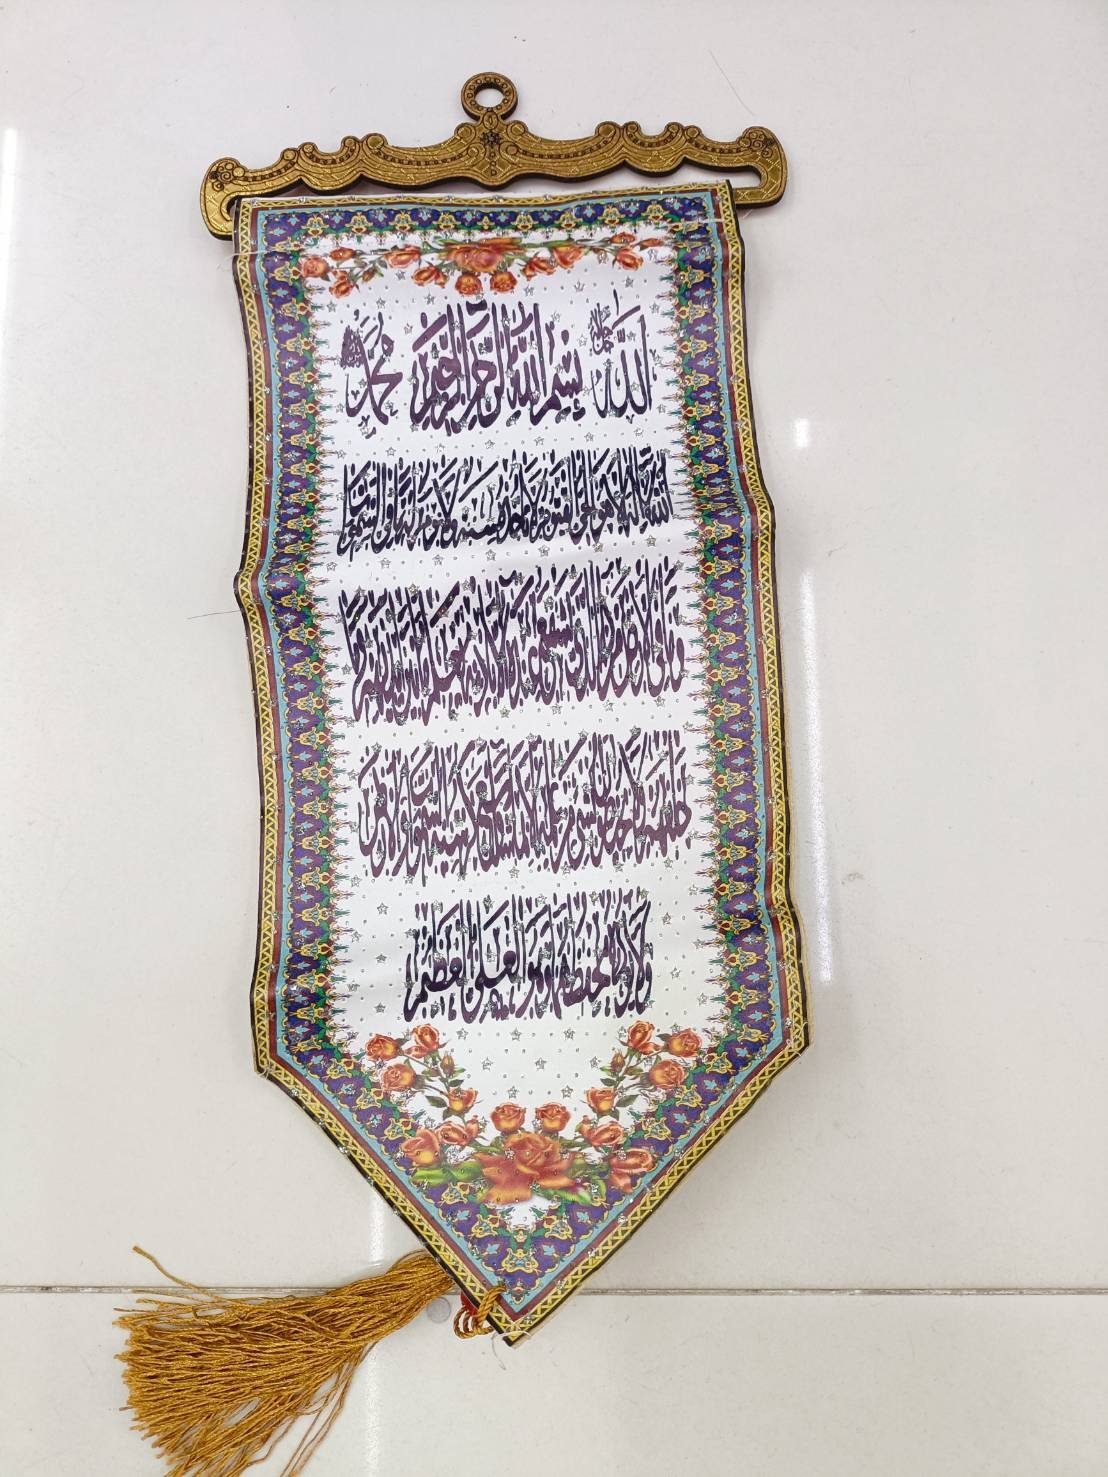 الله جل جلاله بسم الله الرحمن الرحيم محمد
الله لا إله إلا هو الحي القيوم لا تأخذه سنة ولا نوم له ما في السموات
وما في الأرض من ذا الذي يشفع عنده إلا بإذنه يعلم ما بين أيديهم وما
خلفهم ولا يحيطون بشيء من علمه إلا بما شاء وسع كرسيه السموات والأرض
ولا يؤده حفظهما وهو العلي العظيم